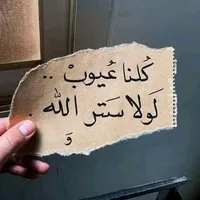 كُلنا عُيوبْ ..
لَولا سَتر الله .
وَ